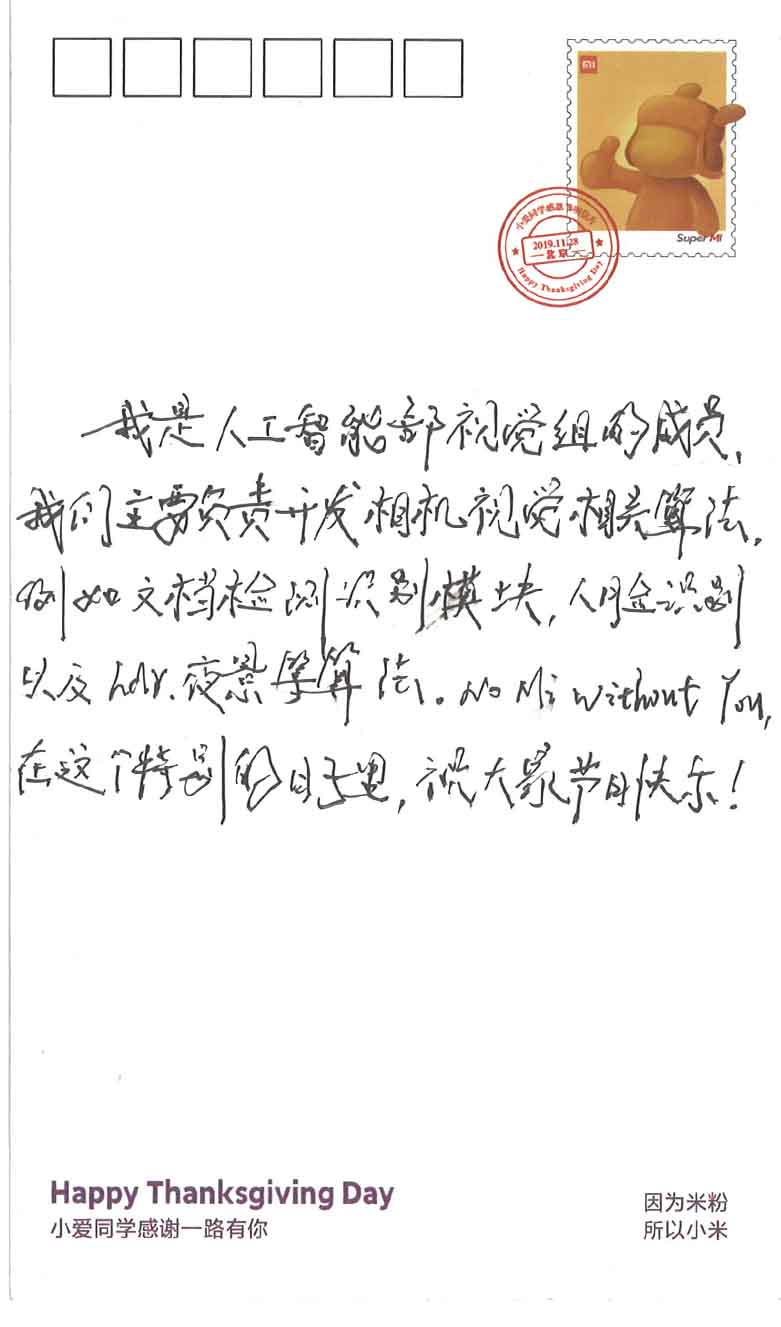 MI
Super MI
小爱同学感恩节明信片
2019.11.28
北京
Happy Thanksgiving Day
我是人工智能部视觉组的成员,
我们主要负责开发相机视觉相关算法,
例如文档检测识别模块,人脸识别
以及hdr.夜景等算法。No Mi Without You,
在这个特别的日子里,祝大家节日快乐!
Happy Thanksgiving Day
小爱同学感谢一路有你
因为米粉
所以小米